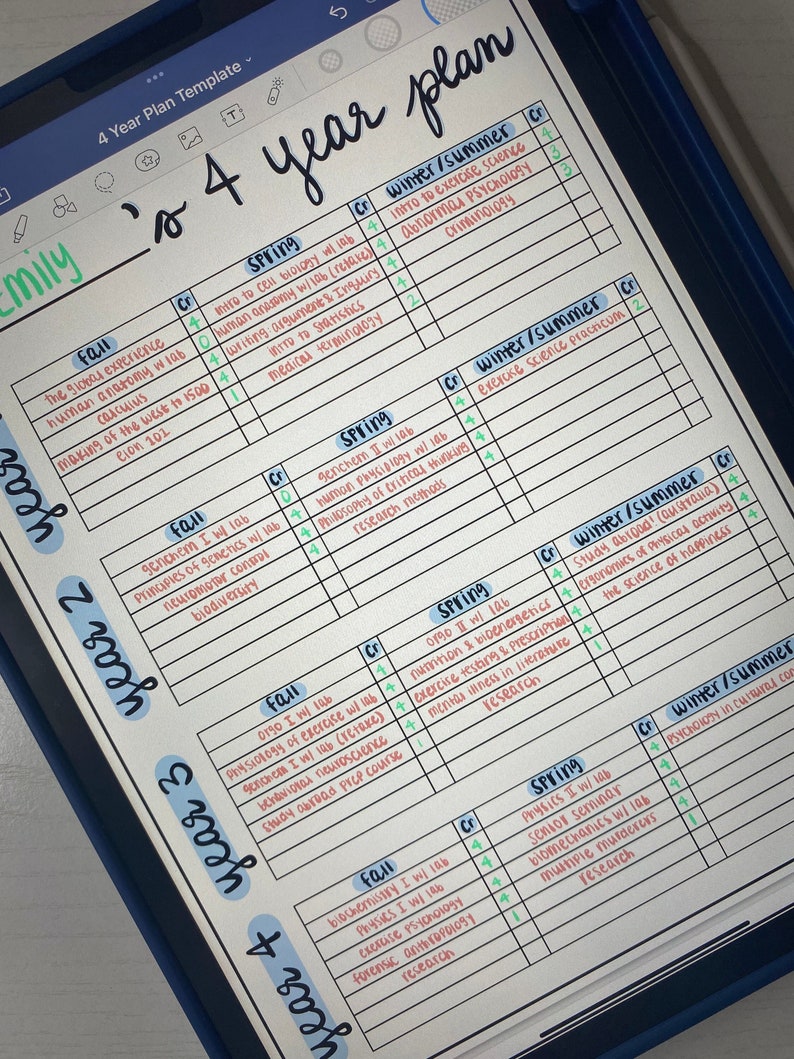 4 Year Plan Template
Emily's 4 year plan
year
fall Cr
the global experience 4
human anatomy w lab 0
calculus 4
making of the west to 1500 4
elon 101 1
spring Cr
intro to cell biology w/ lab 4
human anatomy w/ lab (retake) 4
writing: argument & Inquiry 4
intro to statistics 4
medical terminology 2
winter/summer Cr
intro to exercise science 4
abnormal psychology 3
criminology 3
year 2
fall Cr
genchem I w/ lab 0
principles of genetics w/ lab 4
neuromotor control 4
biodiversity 4
spring Cr
genchem II w/ lab 4
human physiology w/ lab 4
philosophy of critical thinking 4
research methods 4
winter/summer Cr
exercise science practicum 2
year 3
fall Cr
orgo I w/ lab 4
physiology of exercise w/ lab 4
genchem I w/ lab (retake) 4
behavioral neuroscience 4
study abroad prep course 1
spring Cr
orgo II w/ lab 4
nutrition & bioenergetics 4
exercise testing & prescription 4
mental illness in literature 4
research 1
winter/summer Cr
study abroad! (australia) 4
ergonomics of physical activity 4
the science of happiness 4
year 4
fall Cr
biochemistry I w/ lab 4
physics I w/ lab 4
exercise psychology 4
forensic anthropology 4
research 1
spring Cr
physics II w/ lab 4
senior seminar 4
biomechanics w/ lab 4
multiple murderers 4
research 1
winter/summer
psychology in cultural con